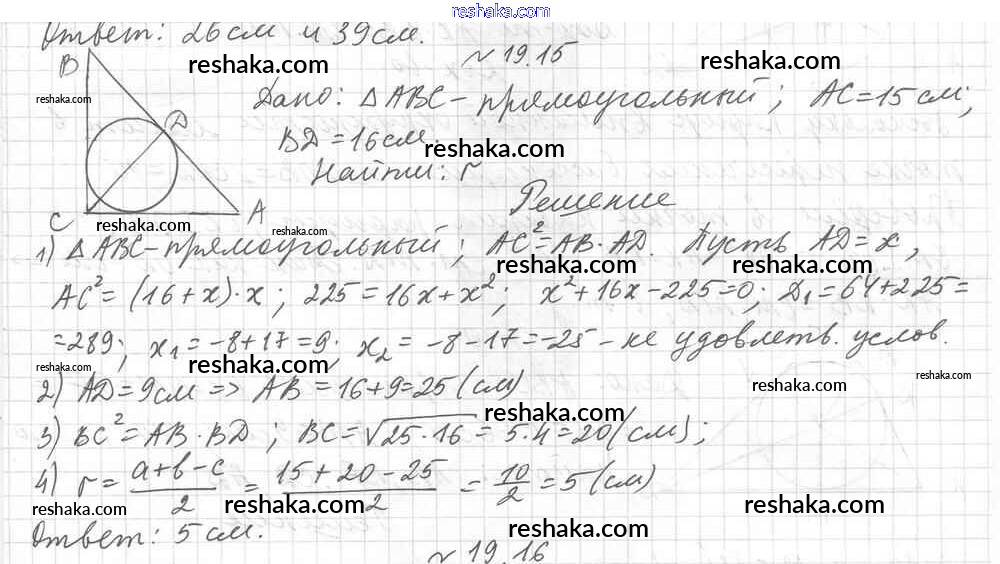 reshaka.com
Ответ: 26 см и 39 см.
№ 19.15
reshaka.com reshaka.com
B
reshaka.com
Дано: △ ABC - прямоугольный; AC = 15 см;
D
BD = 16 см.
reshaka.com
Найти: r
Решение
C A
reshaka.com
reshaka.com
1) △ ABC - прямоугольный; AC² = AB · AD. Пусть AD = x,
reshaka.com reshaka.com
AC² = (16 + x) · x; 225 = 16x + x²; x² + 16x - 225 = 0; D₁ = 64 + 225 =
= 289; x₁ = -8 + 17 = 9; x₂ = -8 - 17 = -25 - не удовлетв. услов.
reshaka.com reshaka.com reshaka.com
2) AD = 9 см => AB = 16 + 9 = 25 (см)
reshaka.com reshaka.com reshaka.com
3) BC² = AB · BD; BC = √25 · 16 = 5 · 4 = 20 (см);
4) r = a + b - c / 2 = 15 + 20 - 25 / 2 = 10 / 2 = 5 (см)
reshaka.com reshaka.com reshaka.com
Ответ: 5 см.
reshaka.com
№ 19.16